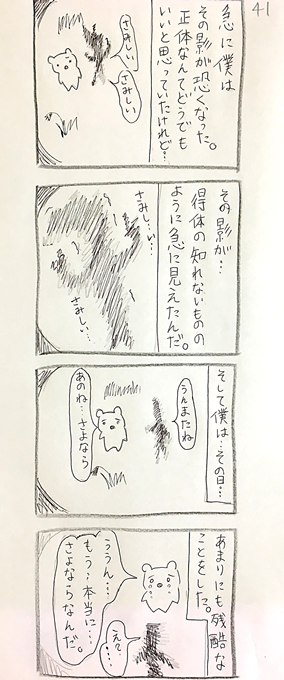 41
急に僕は
その影が恐くなった。
正体なんてどうでも
いいと思っていたけれど…
さみしい
さみしい
その影が…
得体の知れないものの
ように急に見えたんだ。
さみし…い…
さみしい…
そして僕は…その日…
うんまたね
あのね…さよなら
あまりにも残酷な
ことをした。
ううん…
もう…本当に…
さよならなんだ。
え?…